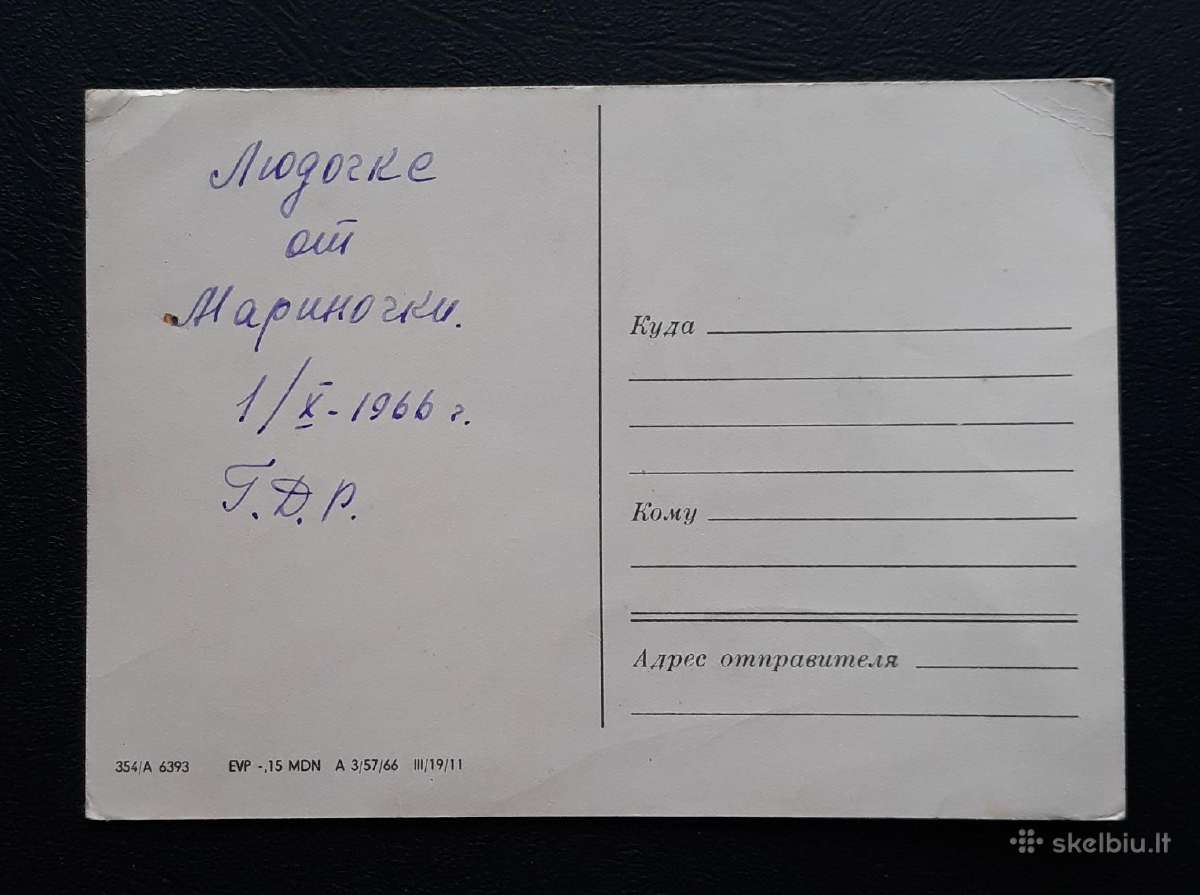 Людочке
от
Мариночки.
1/X-1966 г.
Г.Д.Р.
354/A 6393 EVP -,15 MDN A 3/57/66 III/19/11
Куда
Кому
Адрес отправителя
skelbiu.lt